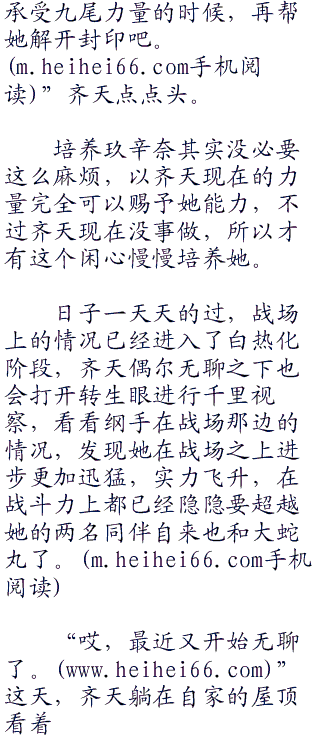 承受九尾力量的时候，再帮
她解开封印吧。
(m.heihei66.com手机阅
读)”齐天点点头。
培养玖辛奈其实没必要
这么麻烦，以齐天现在的力
量完全可以赐予她能力，不
过齐天现在没事做，所以才
有这个闲心慢慢培养她。
日子一天天的过，战场
上的情况已经进入了白热化
阶段，齐天偶尔无聊之下也
会打开转生眼进行千里视
察，看看纲手在战场那边的
情况，发现她在战场之上进
步更加迅猛，实力飞升，在
战斗力上都已经隐隐要超越
她的两名同伴自来也和大蛇
丸了。(m.heihei66.com手机
阅读)
“哎，最近又开始无聊
了。(www.heihei66.com)”
这天，齐天躺在自家的屋顶
看着